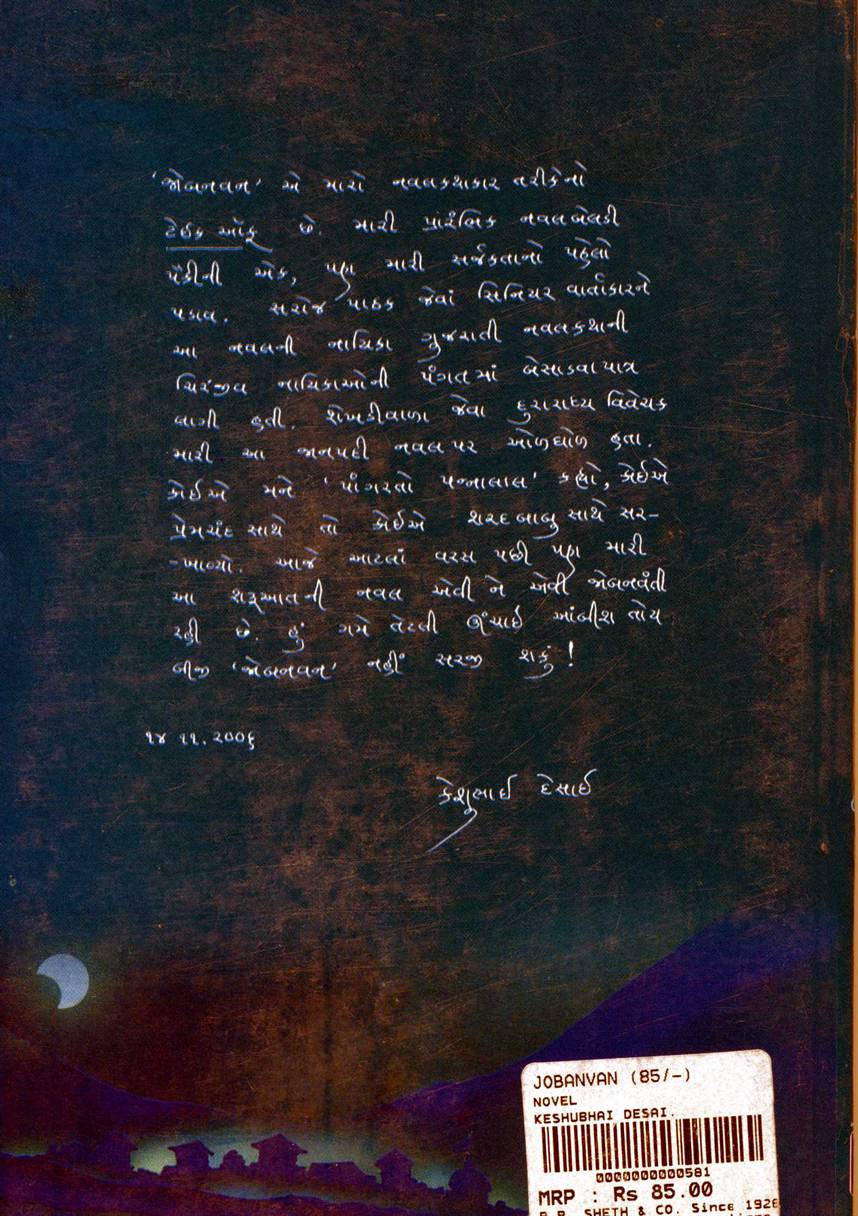 'જોબનવન' એ મારો નવલકથાકાર તરીકેનો
ટેઈક ઑફ છે. મારી પ્રારંભિક નવલબેલડી
પૈકીની એક, પણ મારી સર્જકતાનો પહેલો
પડાવ. સરોજ પાઠક જેવાં સિનિયર વાર્તાકારને
આ નવલની નાયિકા ગુજરાતી નવલકથાની
ચિરંજીવ નાયિકાઓની પંગતમાં બેસાડવાપાત્ર
લાગી હતી. શેખડીવાળા જેવા દુરારાધ્ય વિવેચક
મારી આ જાનપદી નવલ પર ઓળઘોળ હતા.
કોઈએ મને 'પાંગરતો પન્નાલાલ' કહ્યો, કોઈએ
પ્રેમચંદ સાથે તો કોઈએ શરદબાબુ સાથે સર-
-ખાવ્યો. આજે આટલાં વરસ પછી પણ મારી
આ શરૂઆતની નવલ એવી ને એવી જોબનવંતી
રહી છે. હું ગમે તેટલી ઊંચાઈ આંબીશ તોય
બીજી 'જોબનવન' નહીં સરજી શકું!
૧૪ ૧૧.૨૦૦૬
કેશુભાઈ દેસાઈ
JOBANVAN (85/-)
NOVEL
KESHUBHAI DESAI.
0000000000581
MRP : Rs 85.00
R.R. SHETH & CO. Since 1926